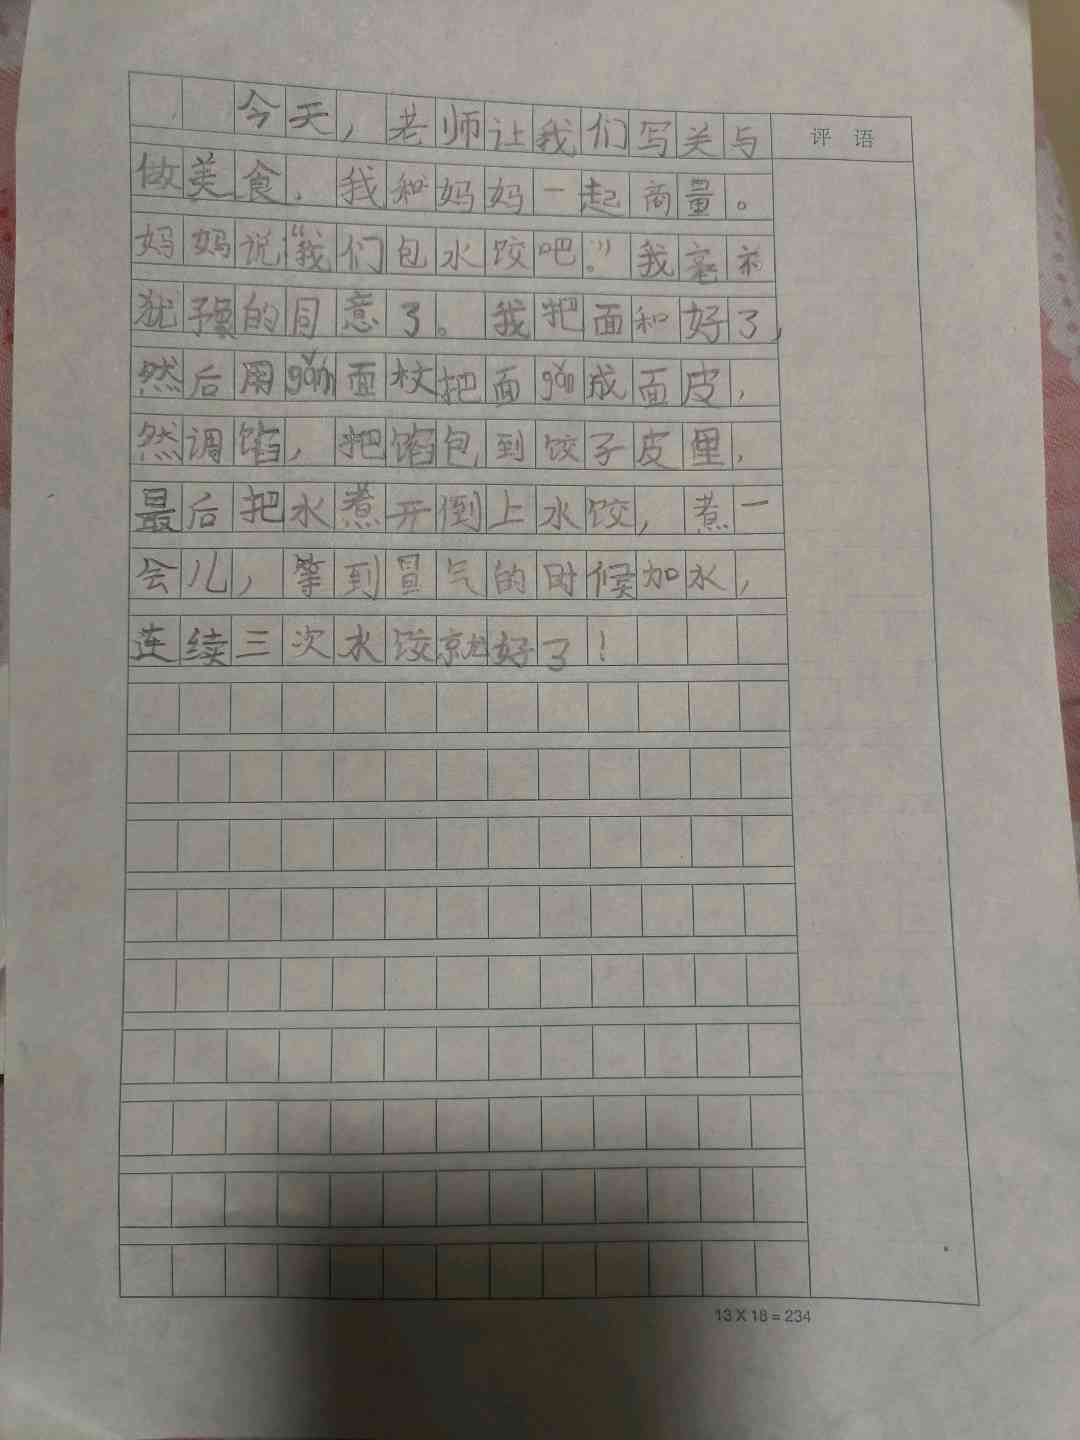 今天，老师让我们写关与
评 语
做美食．我和妈妈一起商量。
妈妈说“我们包水饺吧。”我毫
犹豫的同意了。我把面和好了，
然后用gǎn面杖把面gǎn成面皮，
然调馅，把馅包到饺子皮里，
最后把水煮开倒上水饺，煮一
会儿，等到冒气的时候加水，
连续三次水饺就好了！
13 X 18 = 234